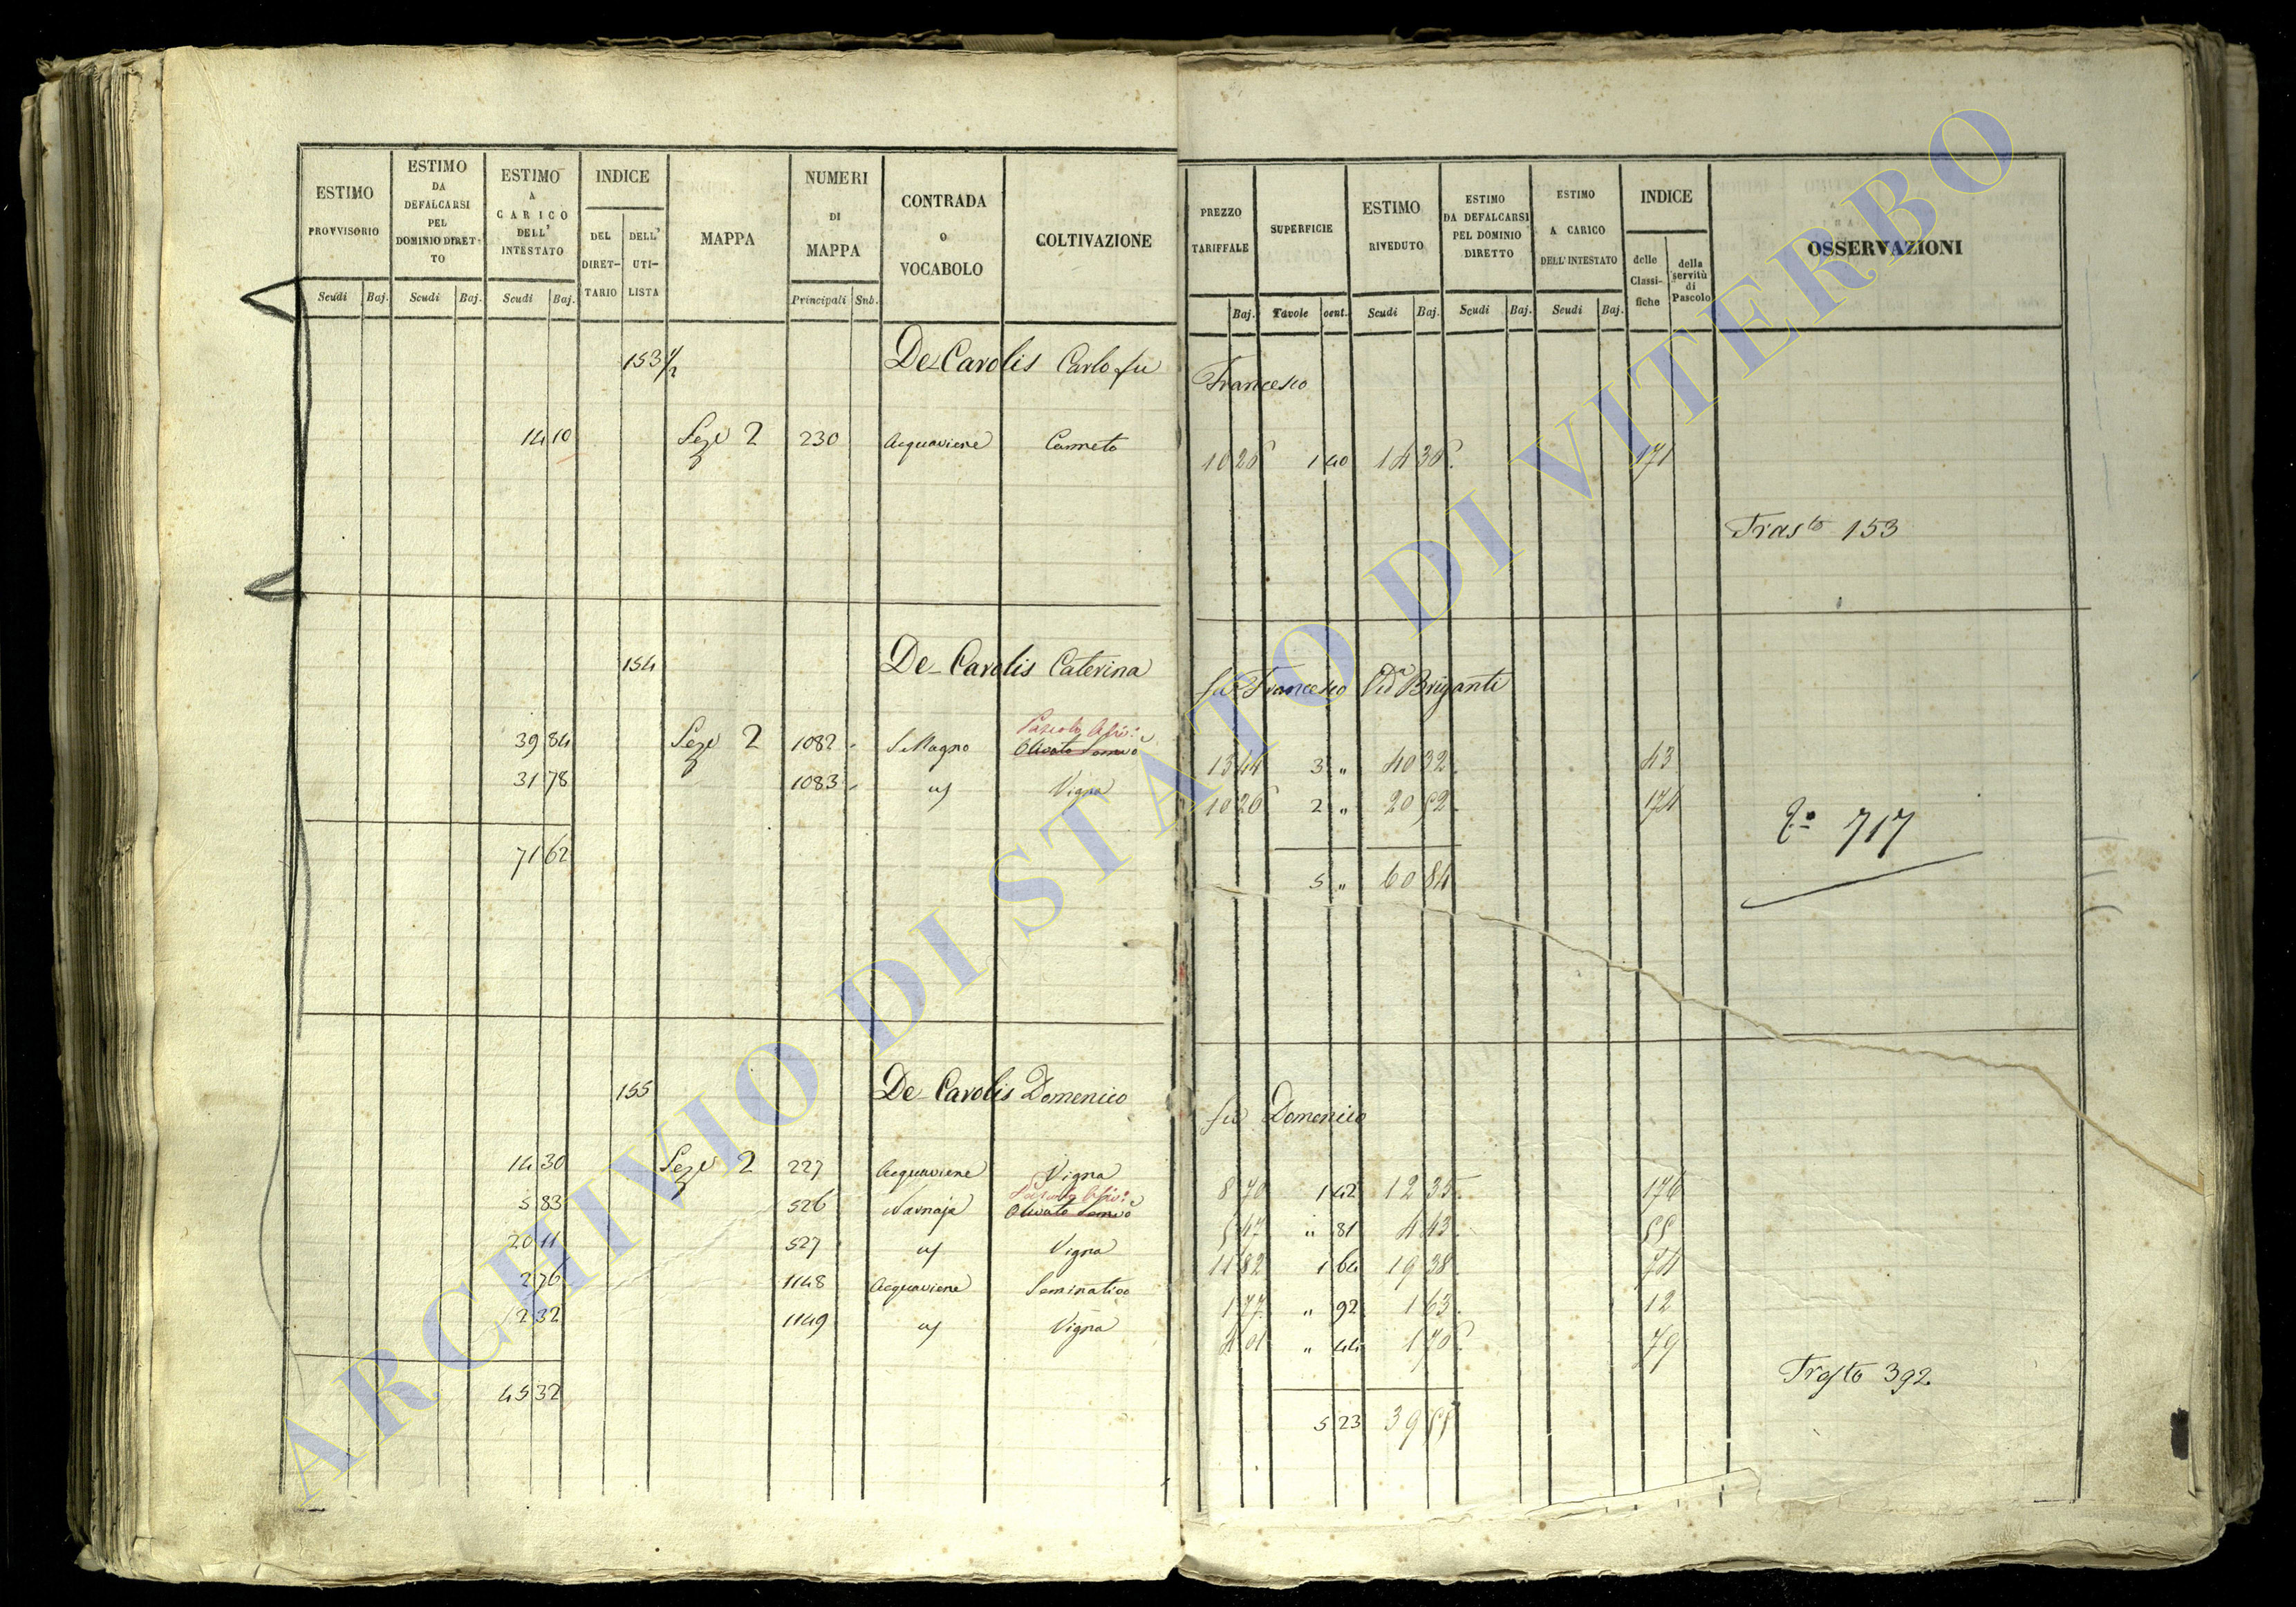 ESTIMO PROVVISORIO Scudi Baj.
ESTIMO DA DEFALCARSI PEL DOMINIO DIRET-TO Scudi Baj.
ESTIMO A CARICO DELL' INTESTATO Scudi Baj.
INDICE DEL DIRET-TARIO DELL' UTI-LISTA
MAPPA
NUMERI DI MAPPA Principali Sub.
CONTRADA O VOCABOLO
COLTIVAZIONE
PREZZO TARIFFALE Baj.
SUPERFICIE Tavole cent.
ESTIMO RIVEDUTO Scudi Baj.
ESTIMO DA DEFALCARSI PEL DOMINIO DIRETTO Scudi Baj.
ESTIMO A CARICO DELL' INTESTATO Scudi Baj.
INDICE delle Classi-fiche della servitù di Pascolo
OSSERVAZIONI
153 1/2 De Carolis Carlo fu Francesco
14 10 Seze 2 230 Acquaviene Canneto 10 26 1 40 14 36 171
Trasto 153
154 De-Carolis Caterina fu Francesco Vda Briganti
Pascolo
39 84 Seze 2 1082 S. Magno Olivato 13 44 3 " 40 32 43
31 78 1083 " Vigna 10 26 2 " 20 52 174
71 62 5 " 60 84
717
155 De-Carolis Domenico fu Domenico
14 30 Seze 2 227 Acquaviene Vigna 8 70 1 42 12 35 176
Pascolo
5 83 526 Varnaja Olivato 5 47 " 81 4 43 55
20 11 527 Vigna 11 82 1 64 19 38 74
2 76 1148 Acquaviene Seminativo 1 77 " 92 1 63 12
2 32 1149 Vigna 4 01 " 44 1 76 79
Trasto 392
45 32 5 23 39 55
ARCHIVIO DI STATO DI VITERBO